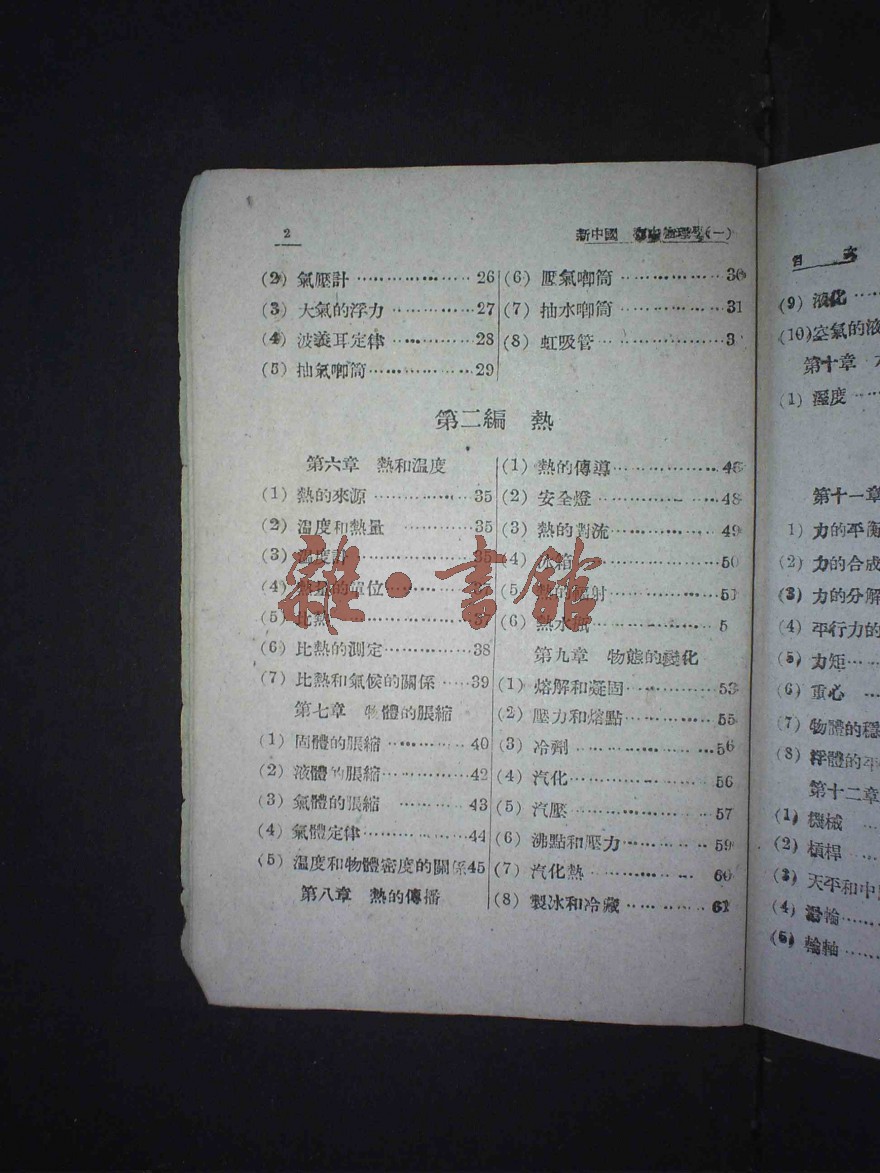 2
新中國 (一)
(2) 氣壓計 26
(3) 大氣的浮力 27
(4) 波義耳定律 28
(5) 抽氣唧筒 29
(6) 壓氣唧筒 30
(7) 抽水唧筒 31
(8) 虹吸管 3
第二編 熱
第六章 熱和溫度
(1) 熱的來源 35
(2) 溫度和熱量 35
(3) 溫度計
(4) 的單位
(5) 比熱 37
(6) 比熱的測定 38
(7) 比熱和氣候的關係 39
第七章 物體的脹縮
(1) 固體的脹縮 40
(2) 液體的脹縮 42
(3) 氣體的脹縮 43
(4) 氣體定律 44
(5) 溫度和物體密度的關係 45
第八章 熱的傳播
(1) 熱的傳導 46
(2) 安全燈 48
(3) 熱的對流 49
(4) 冰箱 50
(5) 射 51
(6) 熱水瓶 5
第九章 物態的變化
(1) 熔解和凝固 53
(2) 壓力和熔點 55
(3) 冷劑 56
(4) 汽化 56
(5) 汽壓 57
(6) 沸點和壓力 59
(7) 汽化熱 60
(8) 製冰和冷藏 61
雜·書館
目 次
(9) 液化
(10) 空氣的液
第十章
(1) 溼度
第十一章
1) 力的平衡
(2) 力的合成
(3) 力的分解
(4) 平行力的
(5) 力矩
(6) 重心
(7) 物體的穩
(8) 浮體的平
第十二章
(1) 機械
(2) 槓桿
(3) 天平和中
(4) 滑輪
(5) 輪軸